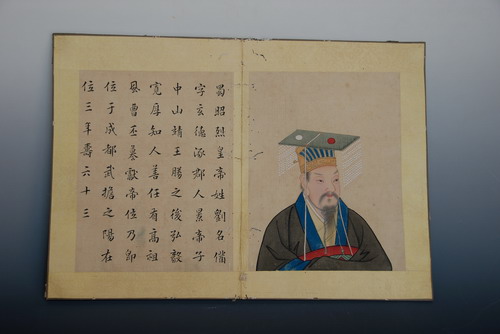 蜀昭烈皇帝姓劉名備
字玄德涿郡人景帝子
中山靖王勝之後弘毅
寬厚知人善任有高祖
風曹丕篡獻帝位乃即
位于成都武擔之陽在
位三年壽六十三